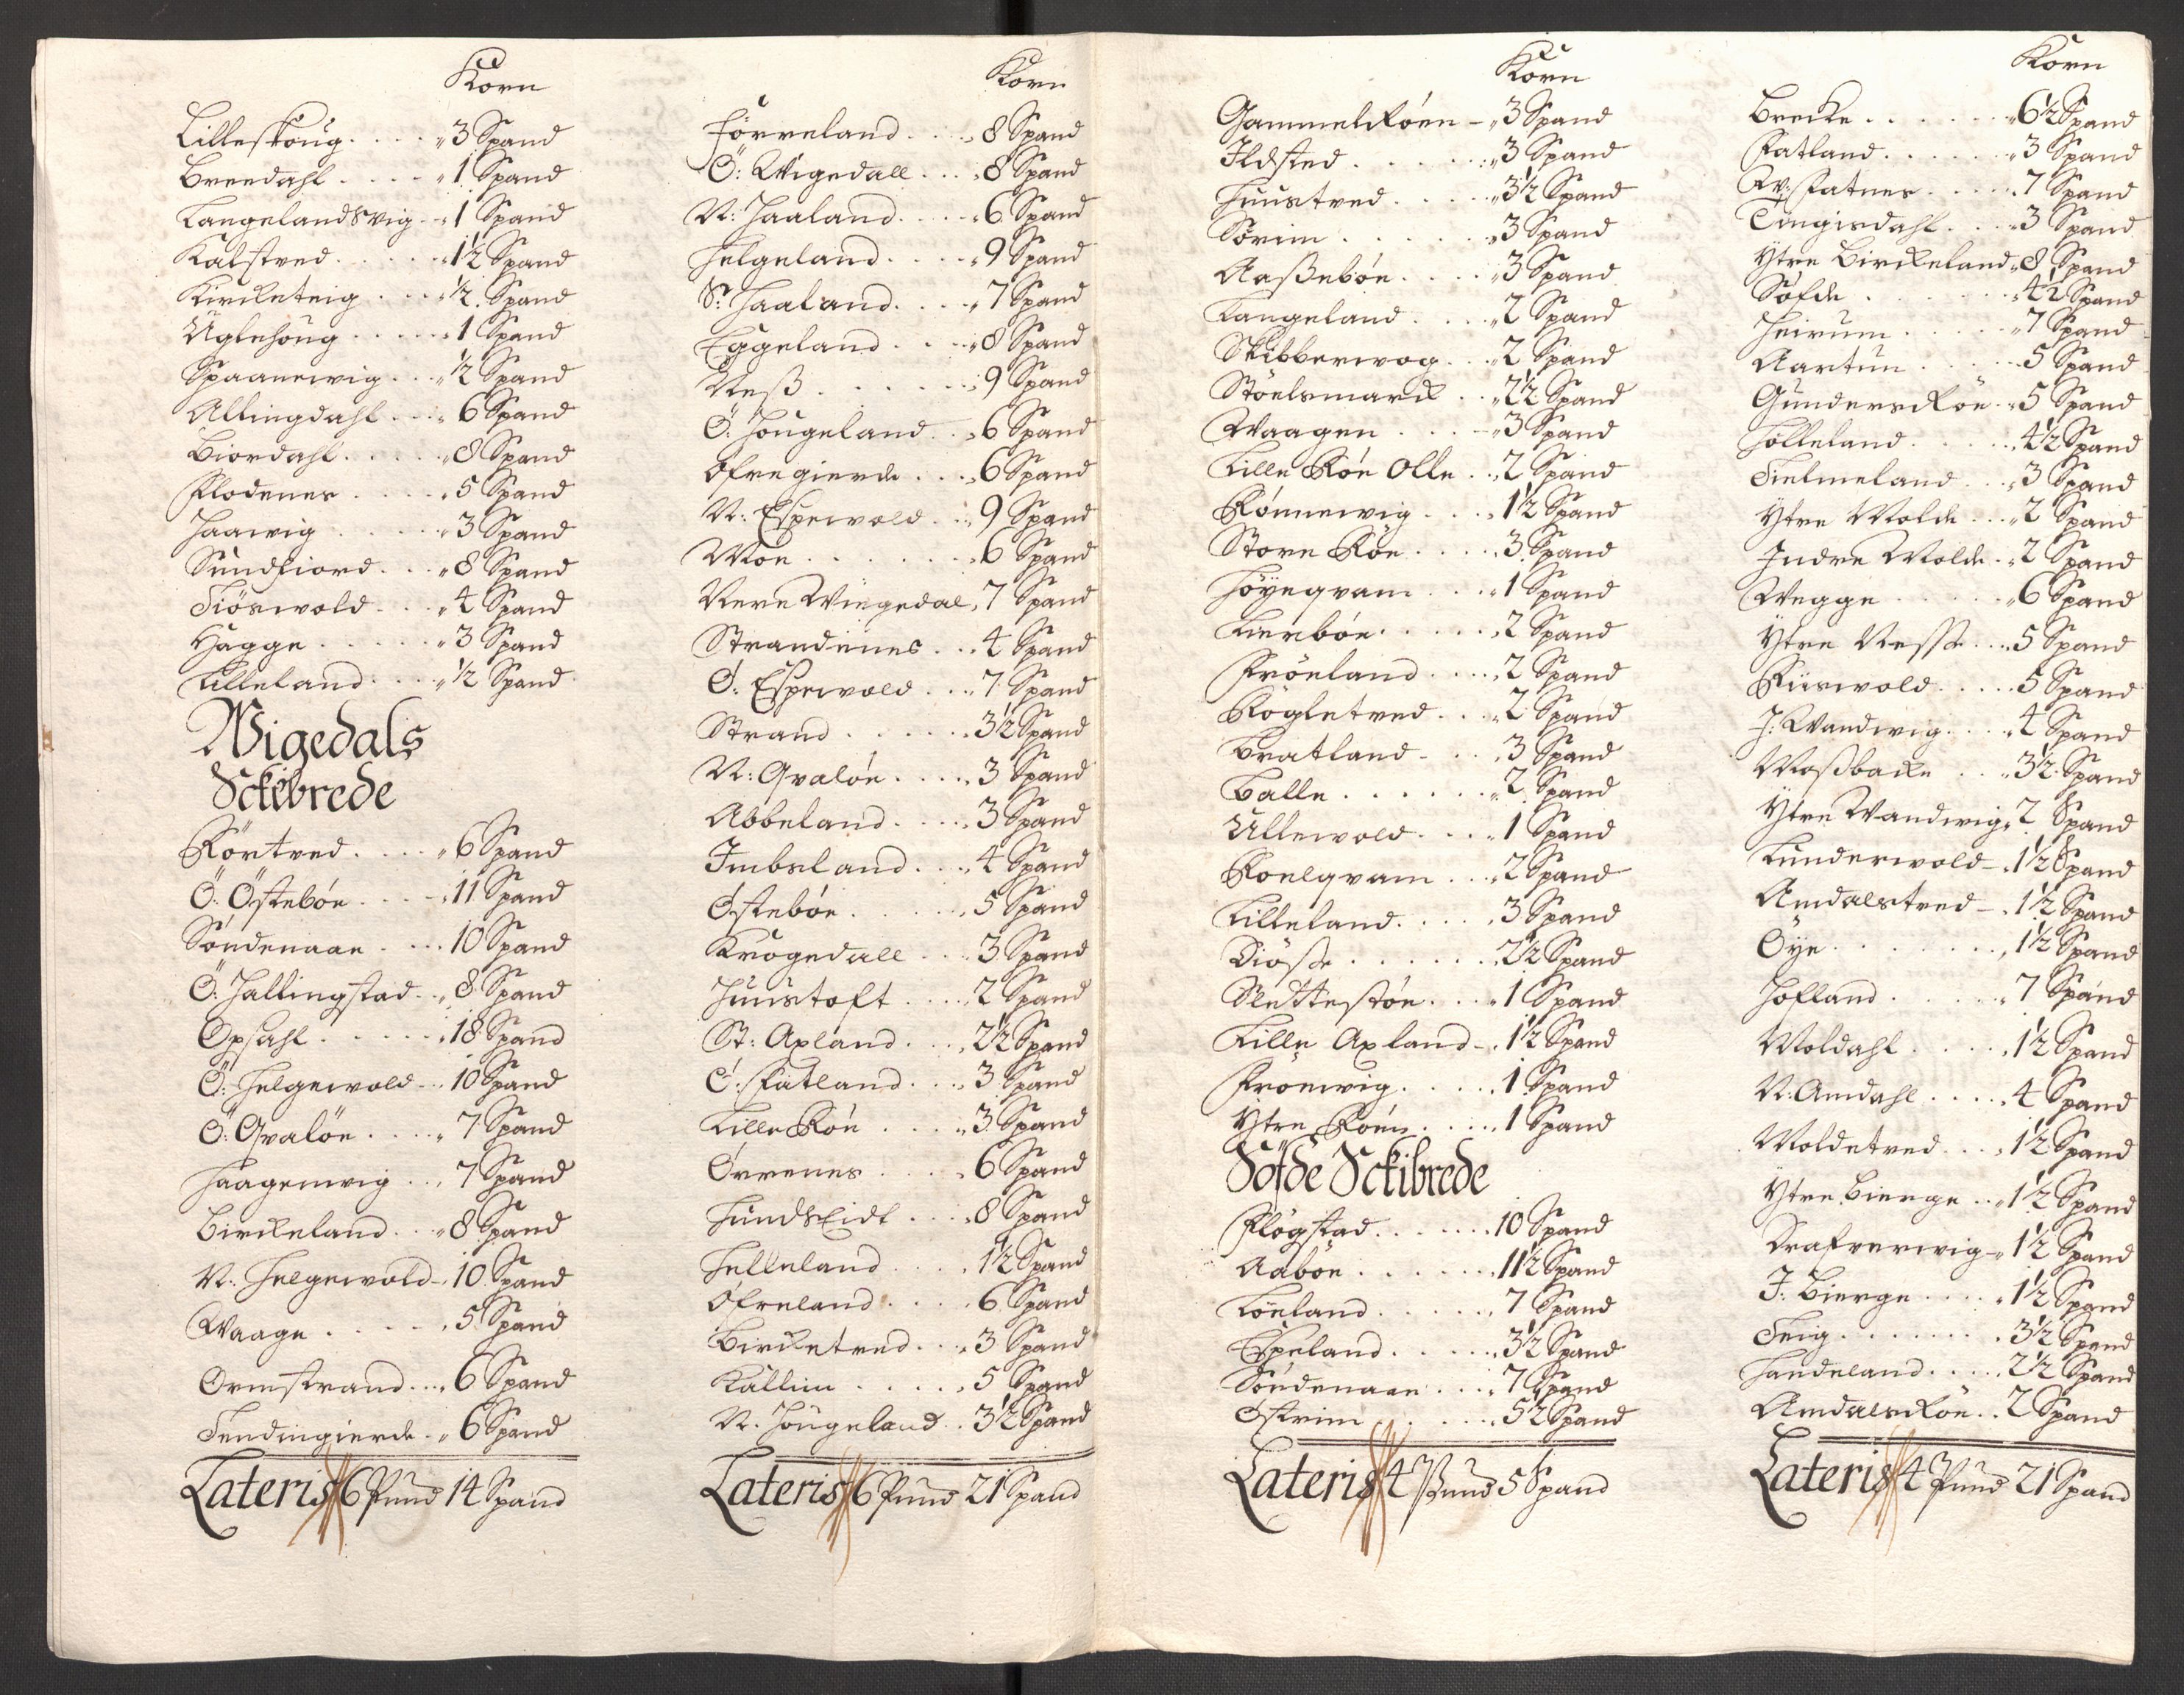 Korn
Lilleskoug . . . . „ 3 Spand
Breedahl . . . . „ 1 Spand
Langelandsvig . . „ 1 Spand
Kalstved . . . . . „ 1½ Spand
Kircketeig . . . „ ½ Spand
Uglehoug . . . . . „ 1 Spand
Spaanewig . . . „ ½ Spand
Allingdahl . . . „ 6 Spand
Biordahl . . . . . „ 8 Spand
Flodenes . . . . „ 5 Spand
Haawig . . . . . „ 3 Spand
Sundfiord . . . „ 8 Spand
Tiöswold . . . „ 4 Spand
Hagge . . . . . „ 3 Spand
Lilleland . . . . „ ½ Spand
Wigedals
Sckibrede
Rörtved . . . . „ 6 Spand
Ö: Östebóe . . . - „ 11 Spand
Söndenaae . . . . 10 Spand
Ö: Hallingstad . . „ 8 Spand
Opsahl . . . . . „ 18 Spand
Ö: Helgewold - . . 10 Spand
Ö: Qvalöe . . . . „ 7 Spand
Haagenwig . . . 7 Spand
Birckeland . . . „ 8 Spand
N: Helgewold - . 10 Spand
Waage . . . . - . 5 Spand
Ormstrand . . . „ 6 Spand
Tendingierde . „ 6 Spand
Lateris 6 Pund 14 Spand
Korn
Förreland . . . . „ 8 Spand
Ö: Wigedall . . . „ 8 Spand
N: Haaland . . . . „ 6 Spand
Helgeland . . . . „ 9 Spand
S: Haaland . . . „ 7 Spand
Eggeland . . . . „ 8 Spand
Neß . . . . . . „ 9 Spand
Ö: Hougeland . . „ 6 Spand
Ofregierde . . . „ 6 Spand
N: Espewold . . „ 9 Spand
Moe . . . . . . . „ 6 Spand
Nere Wiegedal „ 7 Spand
Strandenes . . . 4 Spand
Ó: Espewold . . . „ 7 Spand
Strand . . . . . . 3½ Spand
N: Qvalöe . . . . „ 3 Spand
Abbeland . . . . „ 3 Spand
Imbsland . . . „ 4 Spand
Óstebóe . . . . . „ 5 Spand
Krogedall . . . 3 Spand
Huustoft . . . . „ 2 Spand
St: Axland . . . „ 2½ Spand
Ó: Fatland . . . „ 3 Spand
Lille Röe . . . „ 3 Spand
Órrenes . . . . „ 6 Spand
Hundseidt . . . „ 8 Spand
Helleland . . . . 1½ Spand
Ófreland . . . . 6 Spand
Bircketved . . . „ 3 Spand
Kallim . . . . . „ 5 Spand
N. Hougeland . . 3½ Spand
Lateris 6 Pund 21 Spand
Korn
Gammelróen - „ 3 Spand
Ildsted . . . . . „ 3 Spand
Huustved . . . . „ 3½ Spand
Sörim . . . . . „ 3 Spand
Aaßebóe . . . . „ 3 Spand
Langeland . . . „ 2 Spand
Skibbewog . . . „ 2 Spand
Stóelsmarck . . „ 2½ Spand
Waagen . . . - „ 3 Spand
Lille Róe Olle . . „ 2 Spand
Rónnewig . . . . 1½ Spand
Store Röe . . . . „ 3 Spand
Höyeqvam . . . „ 1 Spand
Lierbóe . . . . . „ 2 Spand
Fröeland . . . . „ 2 Spand
Rögletved . . . „ 2 Spand
Bratland - . . . 3 Spand
Balle . . . . . . „ 2 Spand
Ullewold . . . . „ 1 Spand
Roelqvam . . . „ 2 Spand
Lilleland . . . . „ 3 Spand
Diösse . . . . . . . 2½ Spand
Slettestöe . . . . „ 1 Spand
Lille Axland - . 1½ Spand
Fröewig . . . . „ 1 Spand
Ytre Róen . . . . 1 Spand
Söfde Sckibrede
Flögstad . . . . . . 10 Spand
Aaböe . . . . . . „ 11½ Spand
Löeland . . . . . „ 7 Spand
Espeland . . . . . „ 3½ Spand
Söndenaae . . . . „ 7 Spand
Óstrim . . . . . „ 5½ Spand
Lateris 4 Pund 5 Spand
Korn
Brecke . . . . . . „ 6½ Spand
Fatland . . . . . „ 3 Spand
W: Fatnes . . . . „ 7 Spand
Tengisdahl . . . „ 3 Spand
Ytre Birckeland „ 8 Spand
Söfde . . . . . . „ 4½ Spand
Heirum . . . . . „ 7 Spand
Aartun . . . . . „ 5 Spand
Gundersröe . . „ 5 Spand
Holleland . . . . . 4½ Spand
Tielmeland . . . „ 3 Spand
Ytre Molde . . . „ 2 Spand
Indre Molde . . „ 2 Spand
Wegge . . . . . „ 6 Spand
Ytre Nesse . . . . 5 Spand
Riiswold . . . . . 5 Spand
I: Wandwig . . . . „ 4 Spand
Moßbacke . . . „ 3½ Spand
Ytre Wandwig „ 2 Spand
Lunderwold - „ 1½ Spand
Amdalstved - . 1½ Spand
Öye . . . . . . . „ 1½ Spand
Hofland . . . . . „ 7 Spand
Moldahl . . . . . „ 1½ Spand
N: Amdahl . . . . „ 4 Spand
Moldetved . . . . „ 1½ Spand
Ytre Bierge . . . „ 1½ Spand
Drafverwig - „ 1½ Spand
I: Bierge . . . . „ 1½ Spand
Teig . . . . . . . „ 3½ Spand
Handeland . . . . . 2½ Spand
Amdalsröe . . 2 Spand
Lateris 4 Pund 21 Spand